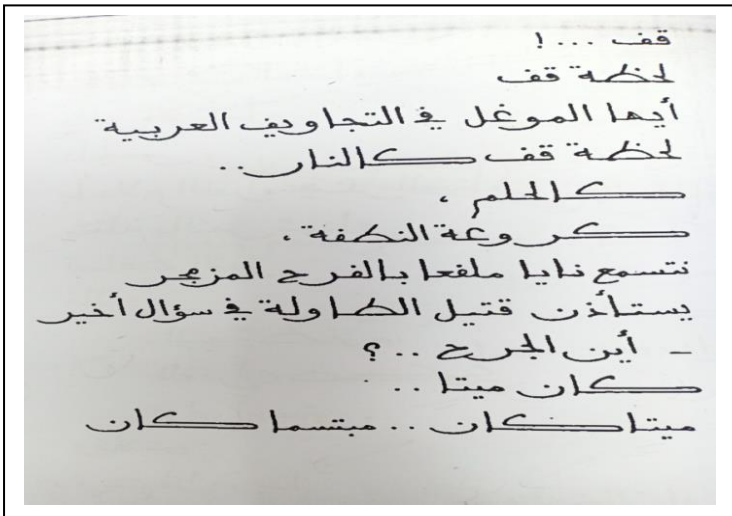 قف ... !
لحظة قف
أيها الموغل في التجاويف العربية
لحظة قف كالنار..
كالحلم ،
كروعة النطفة ،
نتسمع نايا ملفعا بالفرح المزمجر
يستأذن قتيل الطاولة في سؤال أخير
- أين الجرح ..؟
كان ميتا ..
ميتا كان .. مبتسما كان